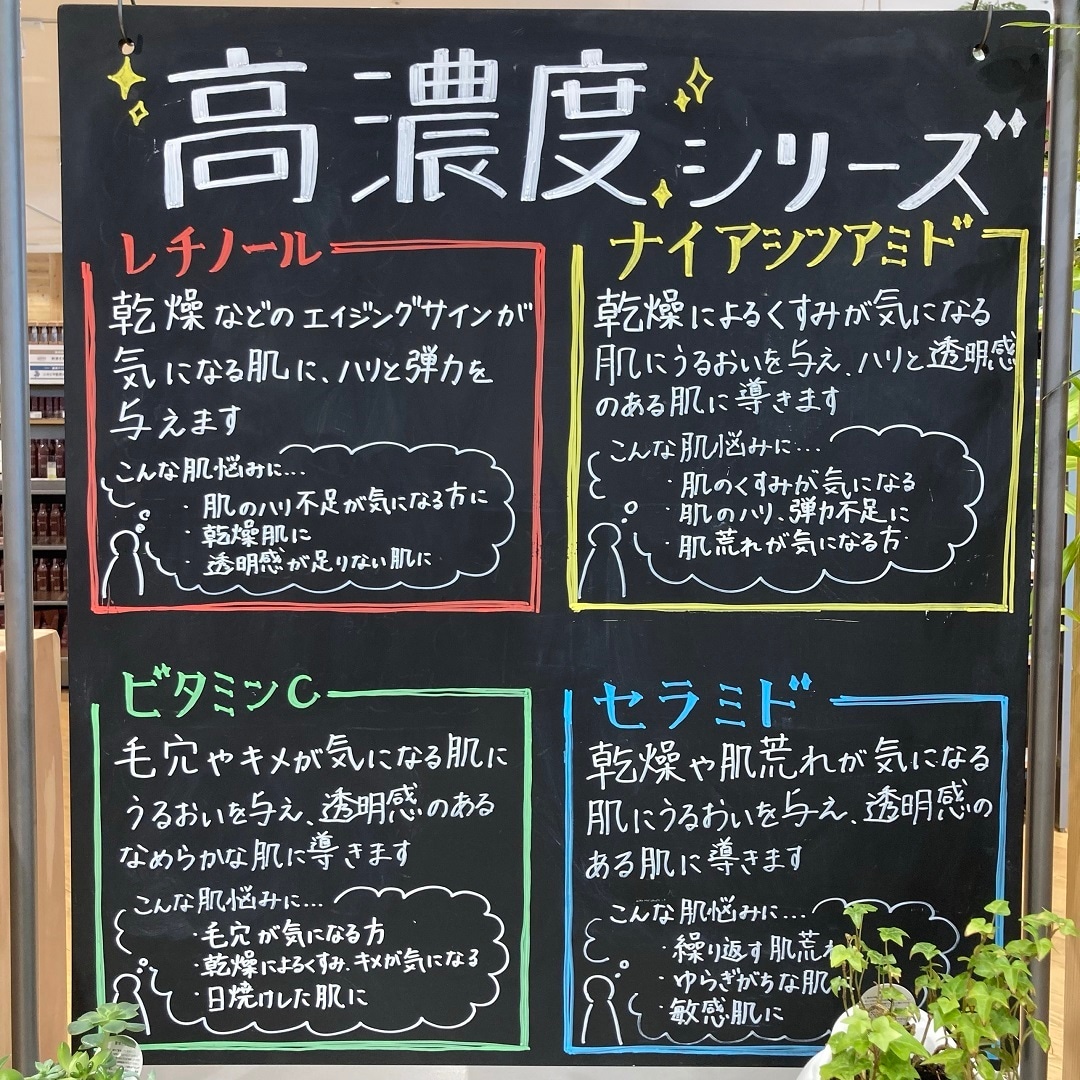 高濃度シリーズ
レチノール
乾燥などのエイジングサインが
気になる肌に、ハリと弾力を
与えます
こんな肌悩みに...
・肌のハリ不足が気になる方に
・乾燥肌に
・透明感が足りない肌に
ナイアシンアミド
乾燥によるくすみが気になる
肌にうるおいを与え、ハリと透明感
のある肌に導きます
こんな肌悩みに...
・肌のくすみが気になる
・肌のハリ、弾力不足に
・肌荒れが気になる方
ビタミンC
毛穴やキメが気になる肌に
うるおいを与え、透明感のある
なめらかな肌に導きます
こんな肌悩みに...
・毛穴が気になる方
・乾燥によるくすみ、キメが気になる
・日焼けした肌に
セラミド
乾燥や肌荒れが気になる
肌にうるおいを与え、透明感の
ある肌に導きます
こんな肌悩みに...
・繰り返す肌荒れ
・ゆらぎがちな肌
・敏感肌に